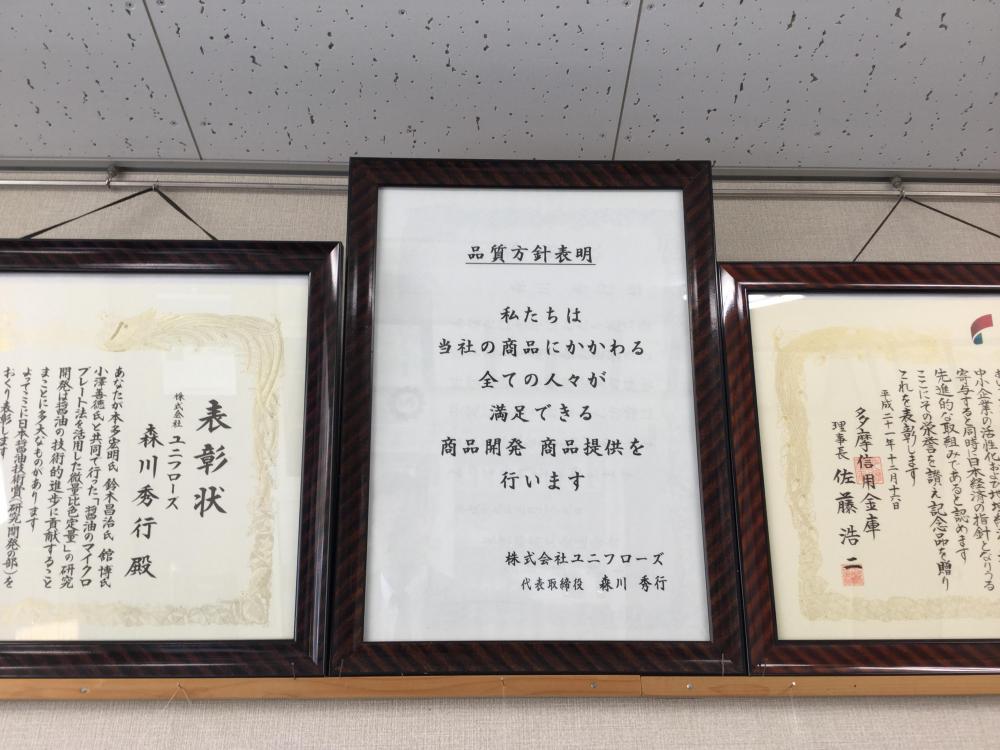 表彰状
株式会社 ユニフローズ
森川秀行 殿
あなたが本多宏明氏 鈴木昌治氏 舘 博氏
小澤善徳氏と共同で行った「醤油のマイクロ
プレート法を活用した微量比色定量」の研究
開発は醤油の技術的進歩に貢献すること
まことに多大なものがあります
よってここに日本醤油技術賞(研究開発の部)を
おくり表彰します
品質方針表明
私たちは
当社の商品にかかわる
全ての人々が
満足できる
商品開発 商品提供を
行います
株式会社ユニフローズ
代表取締役 森川 秀行
中小企業の活性化および地域
寄与すると同時に日本経済の指針となりうる
先進的な取組みであると認めます
ここにその栄誉を讃え記念品を贈り
これを表彰します
平成二十一年十二月十六日
多摩信用金庫
理事長 佐藤浩二